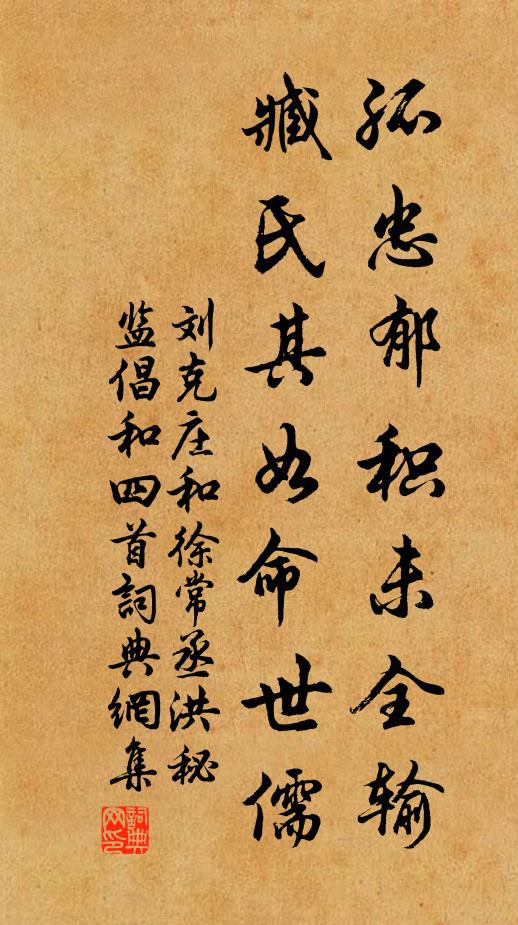 孤忠郁积未全输
臧氏其如命世儒
刘克庄和徐常丞洪秘
监倡和四首詞典網集
詞典
网印